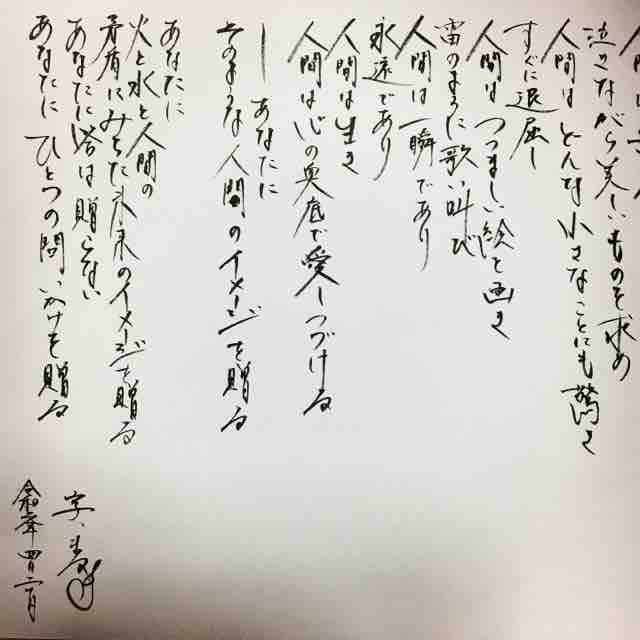 泣きながら美しいものを求め
人間はどんな小さなことにも驚き
すぐに退屈し
人間はつつましい絵を画き
雷のように歌い叫び
人間は一瞬であり
永遠であり
人間は生き
人間は心の奥底で愛しつづける
― あなたに
そのような人間のイメージを贈る
あなたに
火と水と人間の
矛盾にみちた未来のイメージを贈る
あなたに答は贈らない
あなたに ひとつの問いかけを贈る